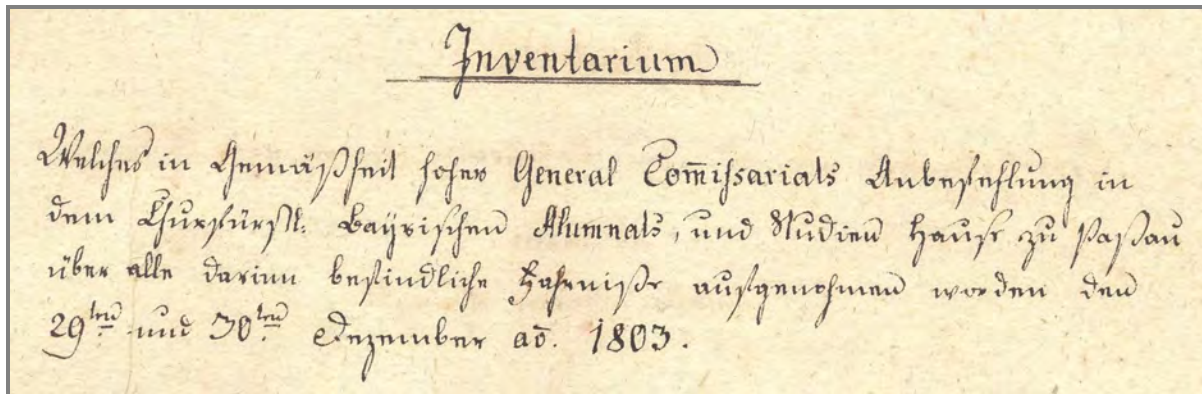 Inventarium
Welches in Gemäßheit hoher General Com̅ißariats Anbefehlung in
dem Churfürstl: Bayrischen Alumnats, und Studien Hause zu Paßau
über alle darinn befindliche Fahrniße aufgenohmen worden den
29ten und 30ten Dezember ao. 1803.